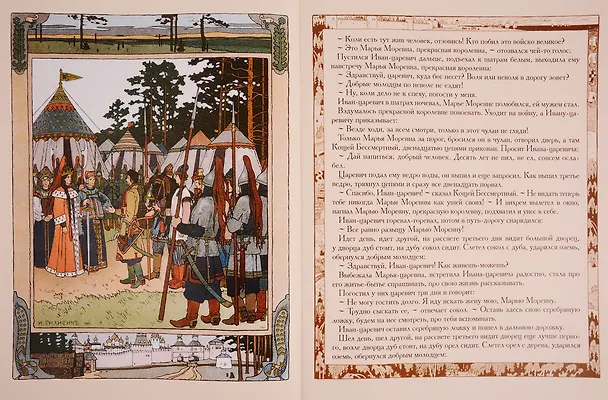 И. БИЛИБИНЪ
~ Коли есть тут жив человек, отзовись! Кто побил это войско великое?
~ Это Марья Моревна, прекрасная королевна, ~ отозвался чей-то голос.
Пустился Иван-царевич дальше, подъехал к шатрам белым, выходила ему
навстречу Марья Моревна, прекрасная королевна:
~ Здравствуй, царевич, куда бог несет? Воля или неволя в дорогу зовет?
~ Добрые молодцы по неволе не ездят!
~ Ну, коли дело не к спеху, погости у меня.
Иван-царевич в шатрах ночевал, Марье Моревне полюбился, ей мужем стал.
Вздумалось прекрасной королевне повоевать. Уходит на войну, а Ивану-ца-
ревичу приказывает:
~ Везде ходи, за всем смотри, только в этот чулан не гляди!
Только Марья Моревна за порог, бросился он в чулан, отворил дверь, а там
Кощей Бессмертный, двенадцатью цепями прикован. Просит Ивана-царевича:
~ Дай напиться, добрый человек. Десять лет не пил, не ел, совсем осла-
бел.
Царевич подал ему ведро воды, он выпил и еще запросил. Как выпил третье
ведро, тряхнул цепями и сразу все двенадцать порвал.
~ Спасибо, Иван-царевич! ~ сказал Кощей Бессмертный. ~ Не видать теперь
тебе никогда Марьи Моревны как ушей своих! ~ И вихрем вылетел в окно,
нагнал Марью Моревну, прекрасную королевну, подхватил и унес к себе.
Иван-царевич горевал-горевал, потом в путь-дорогу снарядился:
~ Все равно разыщу Марью Моревну!
Идет день, идет другой, на рассвете третьего дня видит большой дворец,
у дворца дуб стоит, на дубу сокол сидит. Слетел сокол с дуба, ударился оземь,
обернулся добрым молодцем:
~ Здравствуй, Иван-царевич! Как живешь-можешь?
Выбежала Марья-царевна, встретила Ивана-царевича радостно, стала про
его житье-бытье спрашивать, про свою жизнь рассказывать.
Погостил у них царевич три дня и говорит:
~ Не могу гостить долго. Я иду искать жену мою, Марью Моревну.
~ Трудно сыскать ее, ~ отвечает сокол. ~ Оставь здесь свою серебряную
ложку, будем на нее смотреть, про тебя вспоминать.
Иван-царевич оставил серебряную ложку и пошел в дальнюю дорожку.
Шел день, шел другой, на рассвете третьего видит дворец еще лучше перво-
го, возле дворца дуб стоит, на дубу орел сидит. Слетел орел с дерева, ударился
оземь, обернулся добрым молодцем: